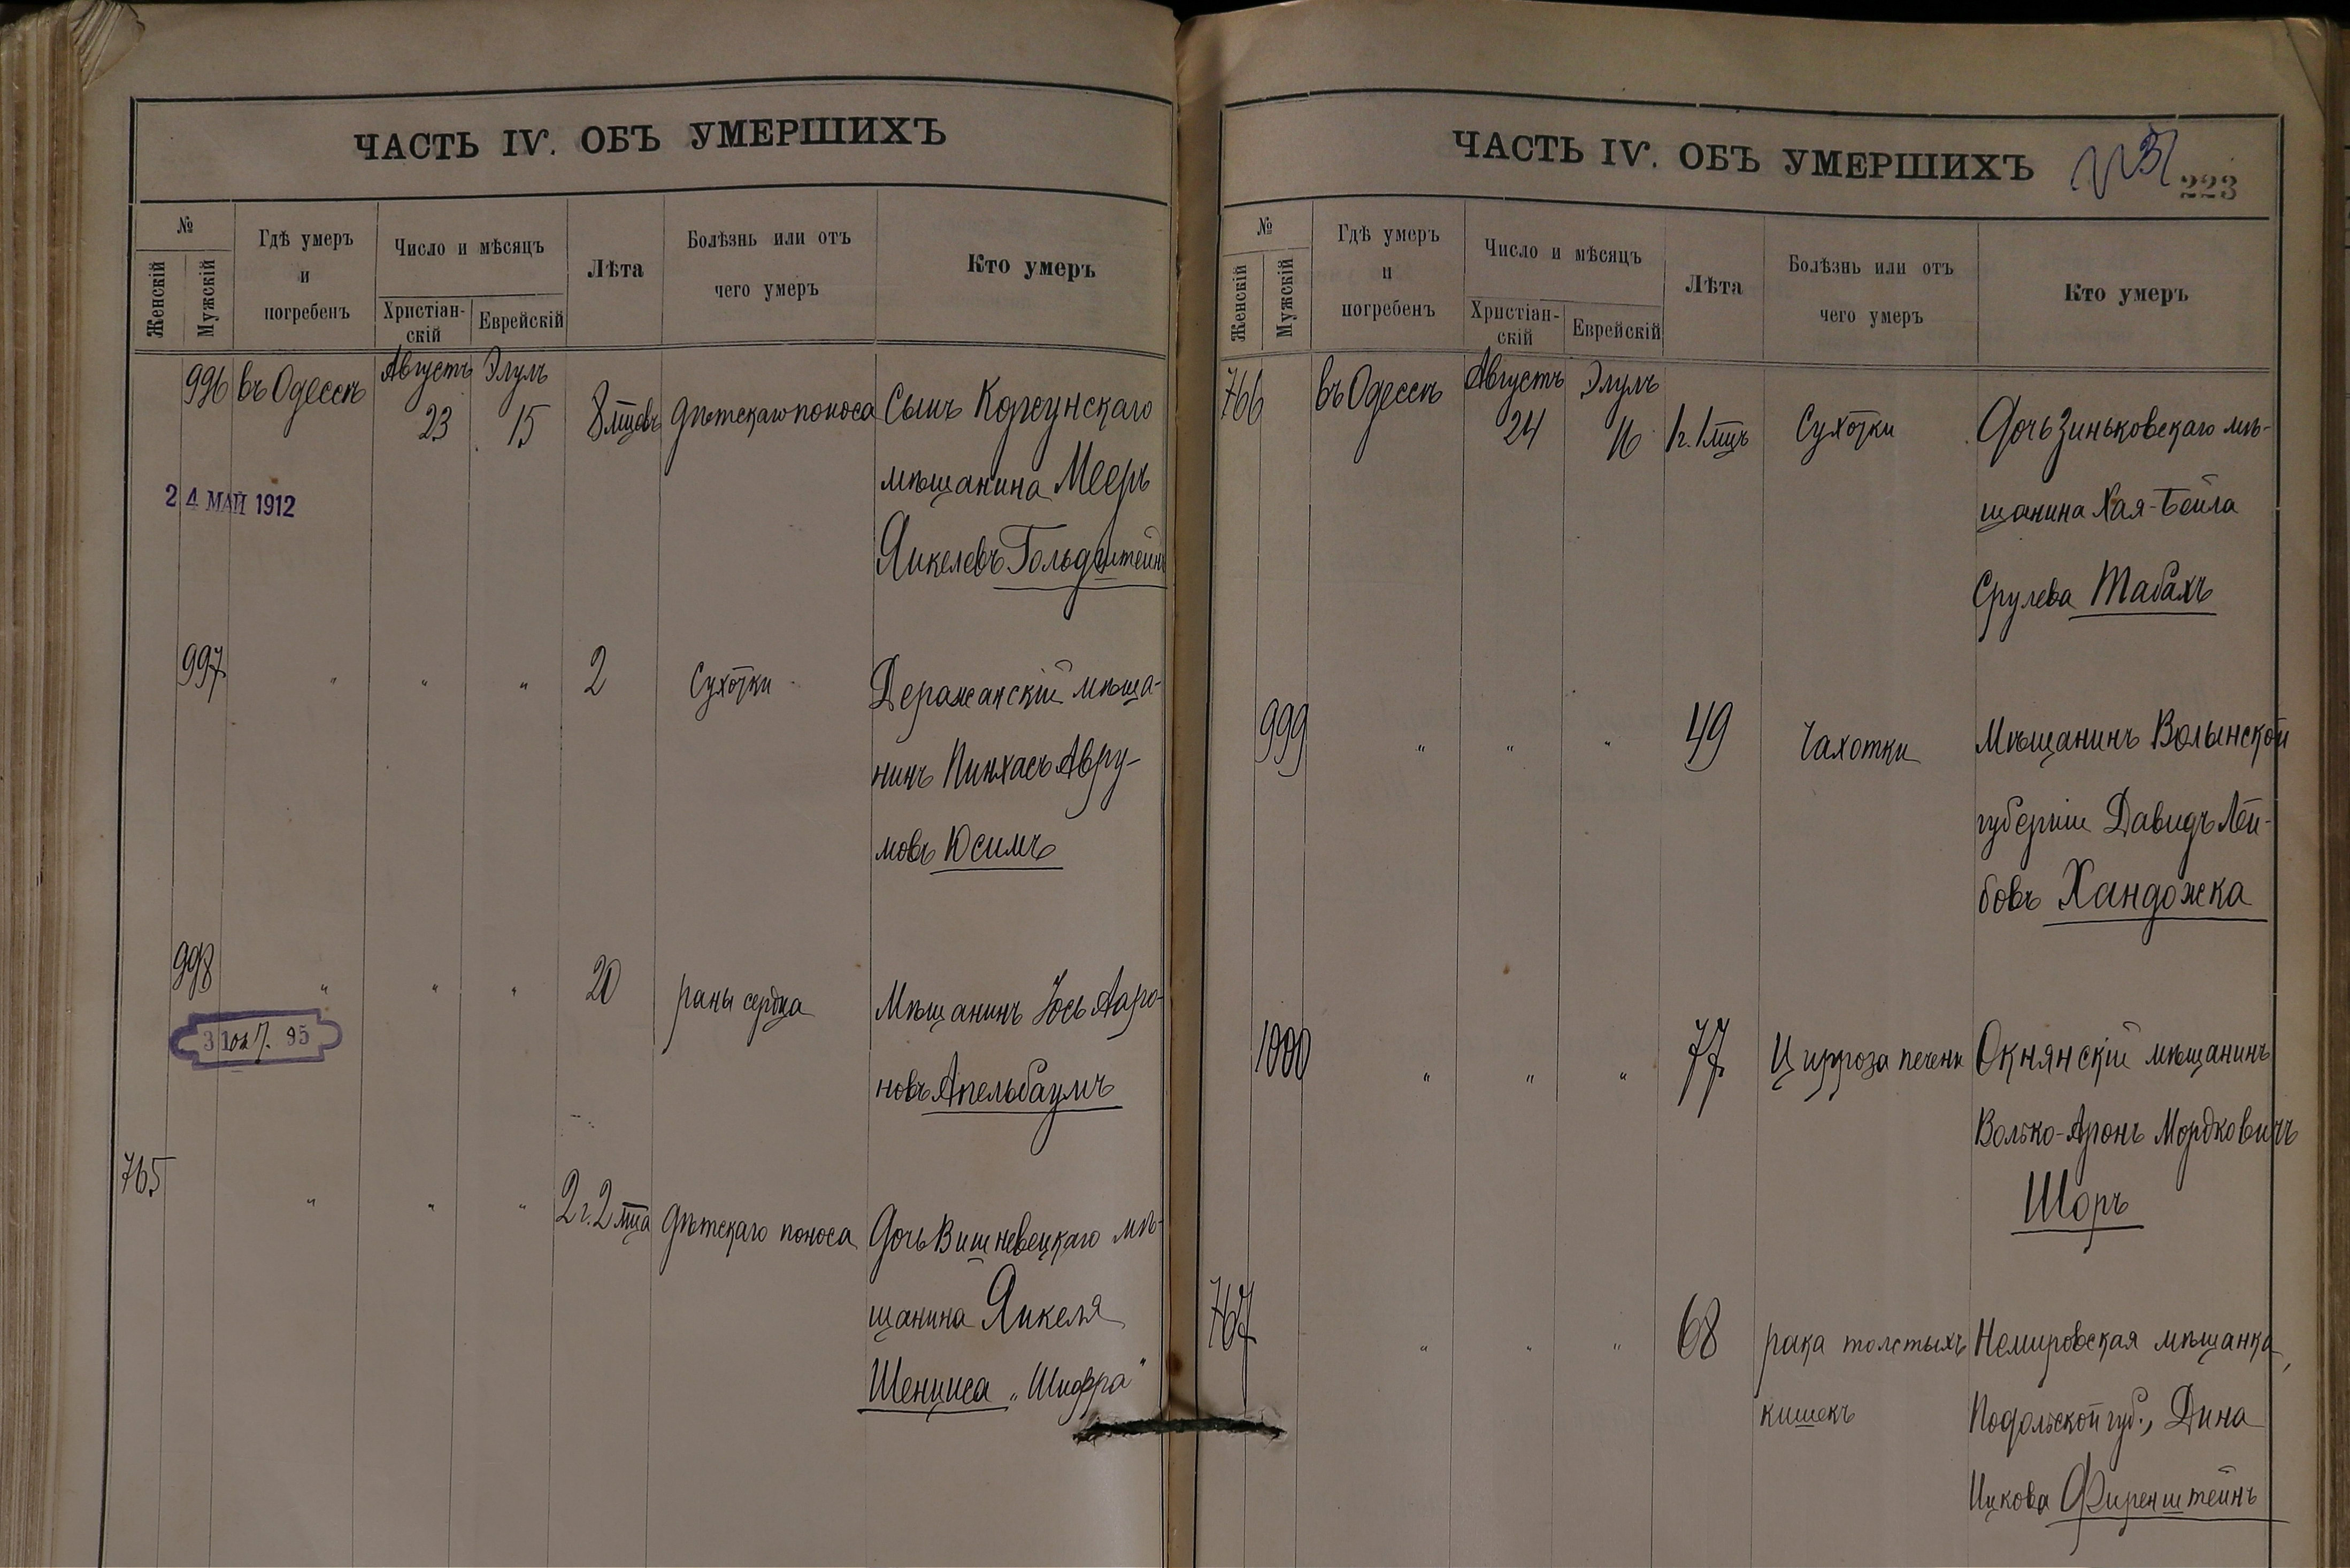 ЧАСТЬ IV. ОБЪ УМЕРШИХЪ
№
Женскій
Мужскій
Гдѣ умеръ
и
погребенъ
Число и мѣсяцъ
Христіан-
скій
Еврейскій
Лѣта
Болѣзнь или отъ
чего умеръ
Кто умеръ
996 въ Одессѣ Августъ 23 Элулъ 15 8 мцовъ дѣтскаго поноса Сынъ Корсунскаго
мѣщанина Мееръ
Янкелевъ Гольдштейнъ
24 МАЙ 1912
997 " " " 2 Сухотки Деражанскій мѣща-
нинъ Пинхасъ Авру-
мовъ Юсимъ
998 " " " 20 раны сердца Мѣщанинъ Іось Ааро-
новъ Апельбаумъ
31 окт. 95
765 " " " 2 г. 2 мца дѣтскаго поноса Дочь Вишневецкаго мѣ-
щанина Янкеля
Шенциса „Шифра"
ЧАСТЬ IV. ОБЪ УМЕРШИХЪ
223
№
Женскій
Мужскій
Гдѣ умеръ
и
погребенъ
Число и мѣсяцъ
Христіан-
скій
Еврейскій
Лѣта
Болѣзнь или отъ
чего умеръ
Кто умеръ
766 въ Одессѣ Августъ 24 Элулъ 16 1 г. 1 мцъ Сухотки Дочь Зиньковскаго мѣ-
щанина Хая-Бейла
Срулева Табахъ
999 " " " 49 Чахотки Мѣщанинъ Волынской
губерніи Давидъ Лей-
бовъ Хандожка
1000 " " " 77 Цирроза печени Окнянскій мѣщанинъ
Волько-Аронъ Мордковичъ
Шоръ
767 " " " 68 рака толстыхъ Немировская мѣщанка,
кишекъ Подольской губ., Дина
Ицкова Фиренштейнъ